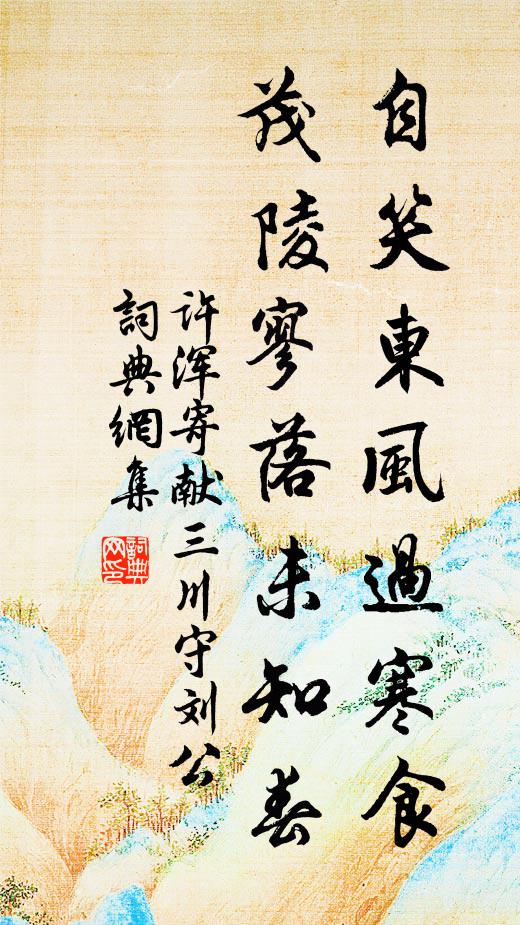 自笑東風過寒食
茂陵寥落未知春
许浑寄献三川守刘公
詞典網集
詞典
网印